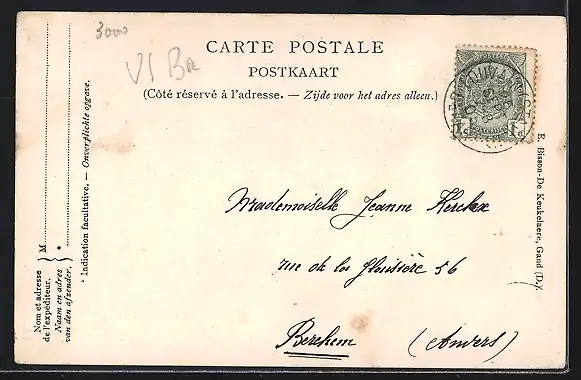 3000
VI Br
CARTE POSTALE
POSTKAART
(Côté réservé à l'adresse. — Zijde voor het adres alleen.)
M
Nom et adresse de l'expéditeur.
Naam en adres van den afzender.
* Indication facultative. — Onverplichte opgave.
Mademoiselle Jeanne Kerckx
rue de la 56
Berchem (Anvers)
E. Bisson-De Keukelaere, Gand (D.)